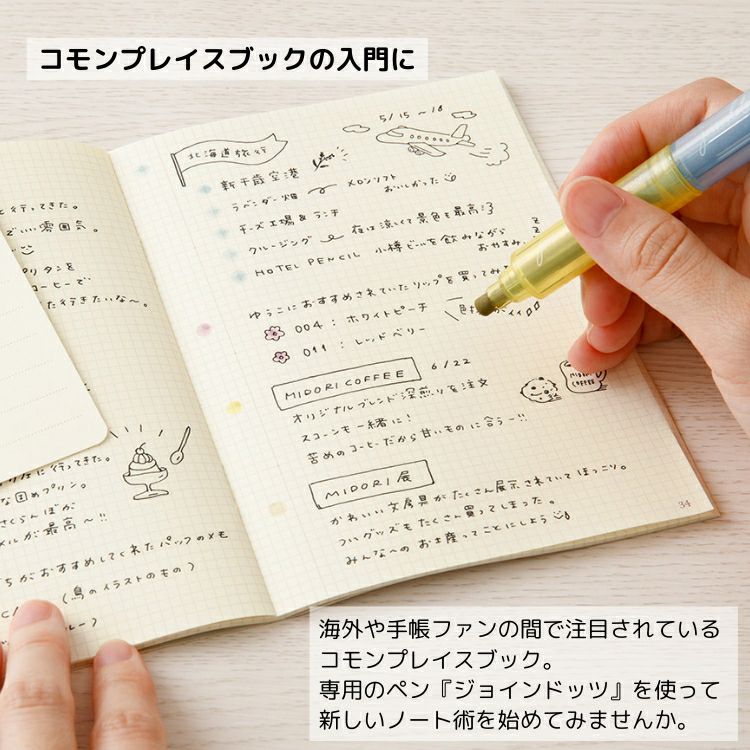 コモンプレイスブックの入門に
と行ってきた。
ごい雰囲気。
プリタンを
コーヒーで
た行きたいな〜。
に行ってきた。
な固めプリン。
さくらんぼが
メルが最高〜!!
ちがおすすめしてくれたパックのメモ
(鳥のイラストのもの)
ルー)
5/15〜18
北海道旅行
新千歳空港
ラベンダー畑 メロンソフト おいしかった
チーズ工場&ランチ
クルージング 夜は涼しくて景色も最高
HOTEL PENCIL 小樽ビールを飲みながら おやすみ
z z
ゆうこにおすすめされていたリップを買ってみ
004:ホワイトピーチ
011:レッドベリー
MIDORI COFFEE 6/22
オリジナルブレンド深煎りを注文
スコーンも一緒に!
苦めのコーヒーだから甘いものに合う〜!!
MIDORI COFFEE
MIDORI展
かわいい文房具がたくさん展示されていてほっこり。
ついグッズもたくさん買ってしまった。
みんなへのお土産ってことにしよう
34
海外や手帳ファンの間で注目されている
コモンプレイスブック。
専用のペン『ジョインドッツ』を使って
新しいノート術を始めてみませんか。